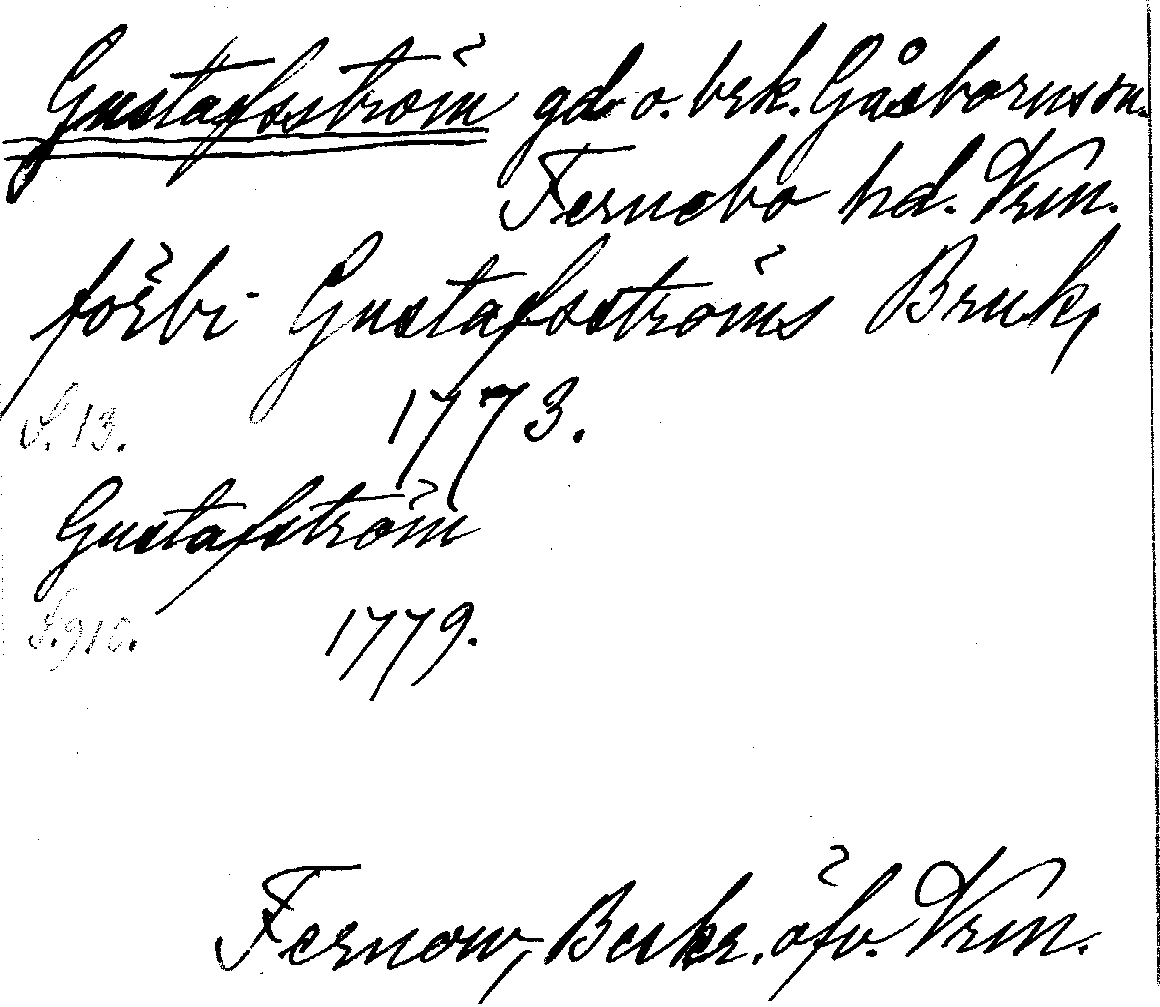 Gustafsström gd o. brk. Gåsborns sn.
Fernebo hd. Vrm.
förbi Gustafsströms Bruk,
S. 13. 1773.
Gustafström
S. 910. 1779.
Fernow, Beskr. öfv. Vrm.